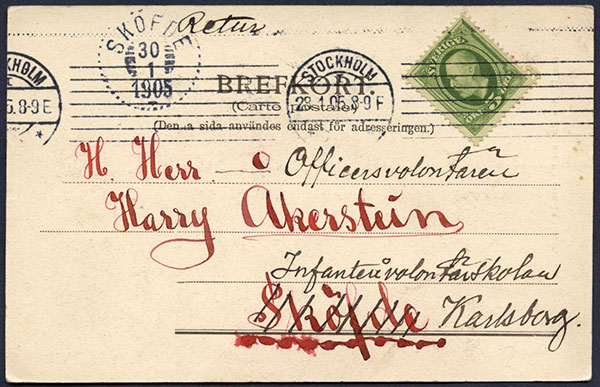 Retur
SKÖFDE
30
1
1905
STOCKHOLM
28.1.05.8-9F
KHOLM
5.8-9E
SVERIGE
BREFKORT.
(Carte postale)
(Denna sida användes endast för adresseringen.)
H. Herr Officersvolontären
Harry Åkerstein
Infanterivolontärskolan
Sköfde Karlsborg.